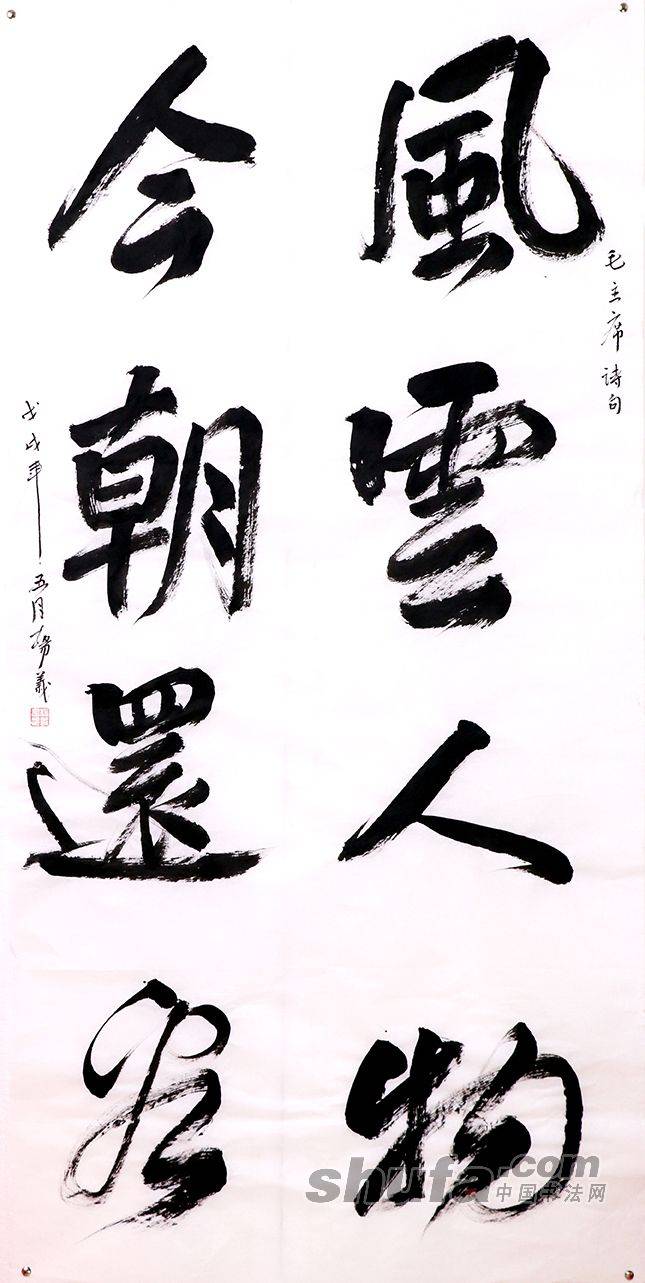 毛主席诗句
風雲人物
今朝還看
戊戌年五月楊義
shufa.com
中国书法网